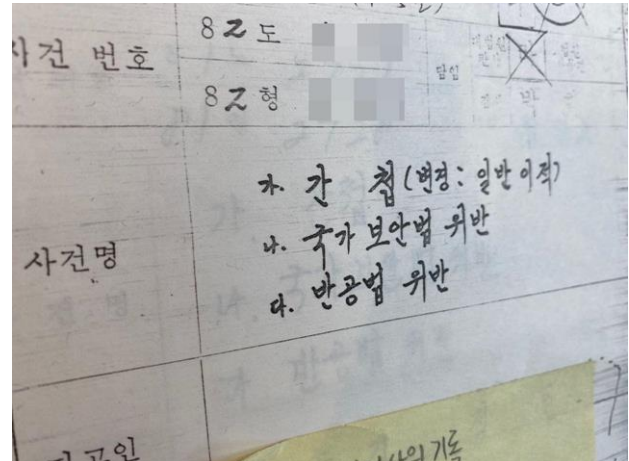 사건 번호
82도
82형
담임
사건명
가. 간 첩 (변경: 일반이적)
나. 국가보안법 위반
다. 반공법 위반
기록